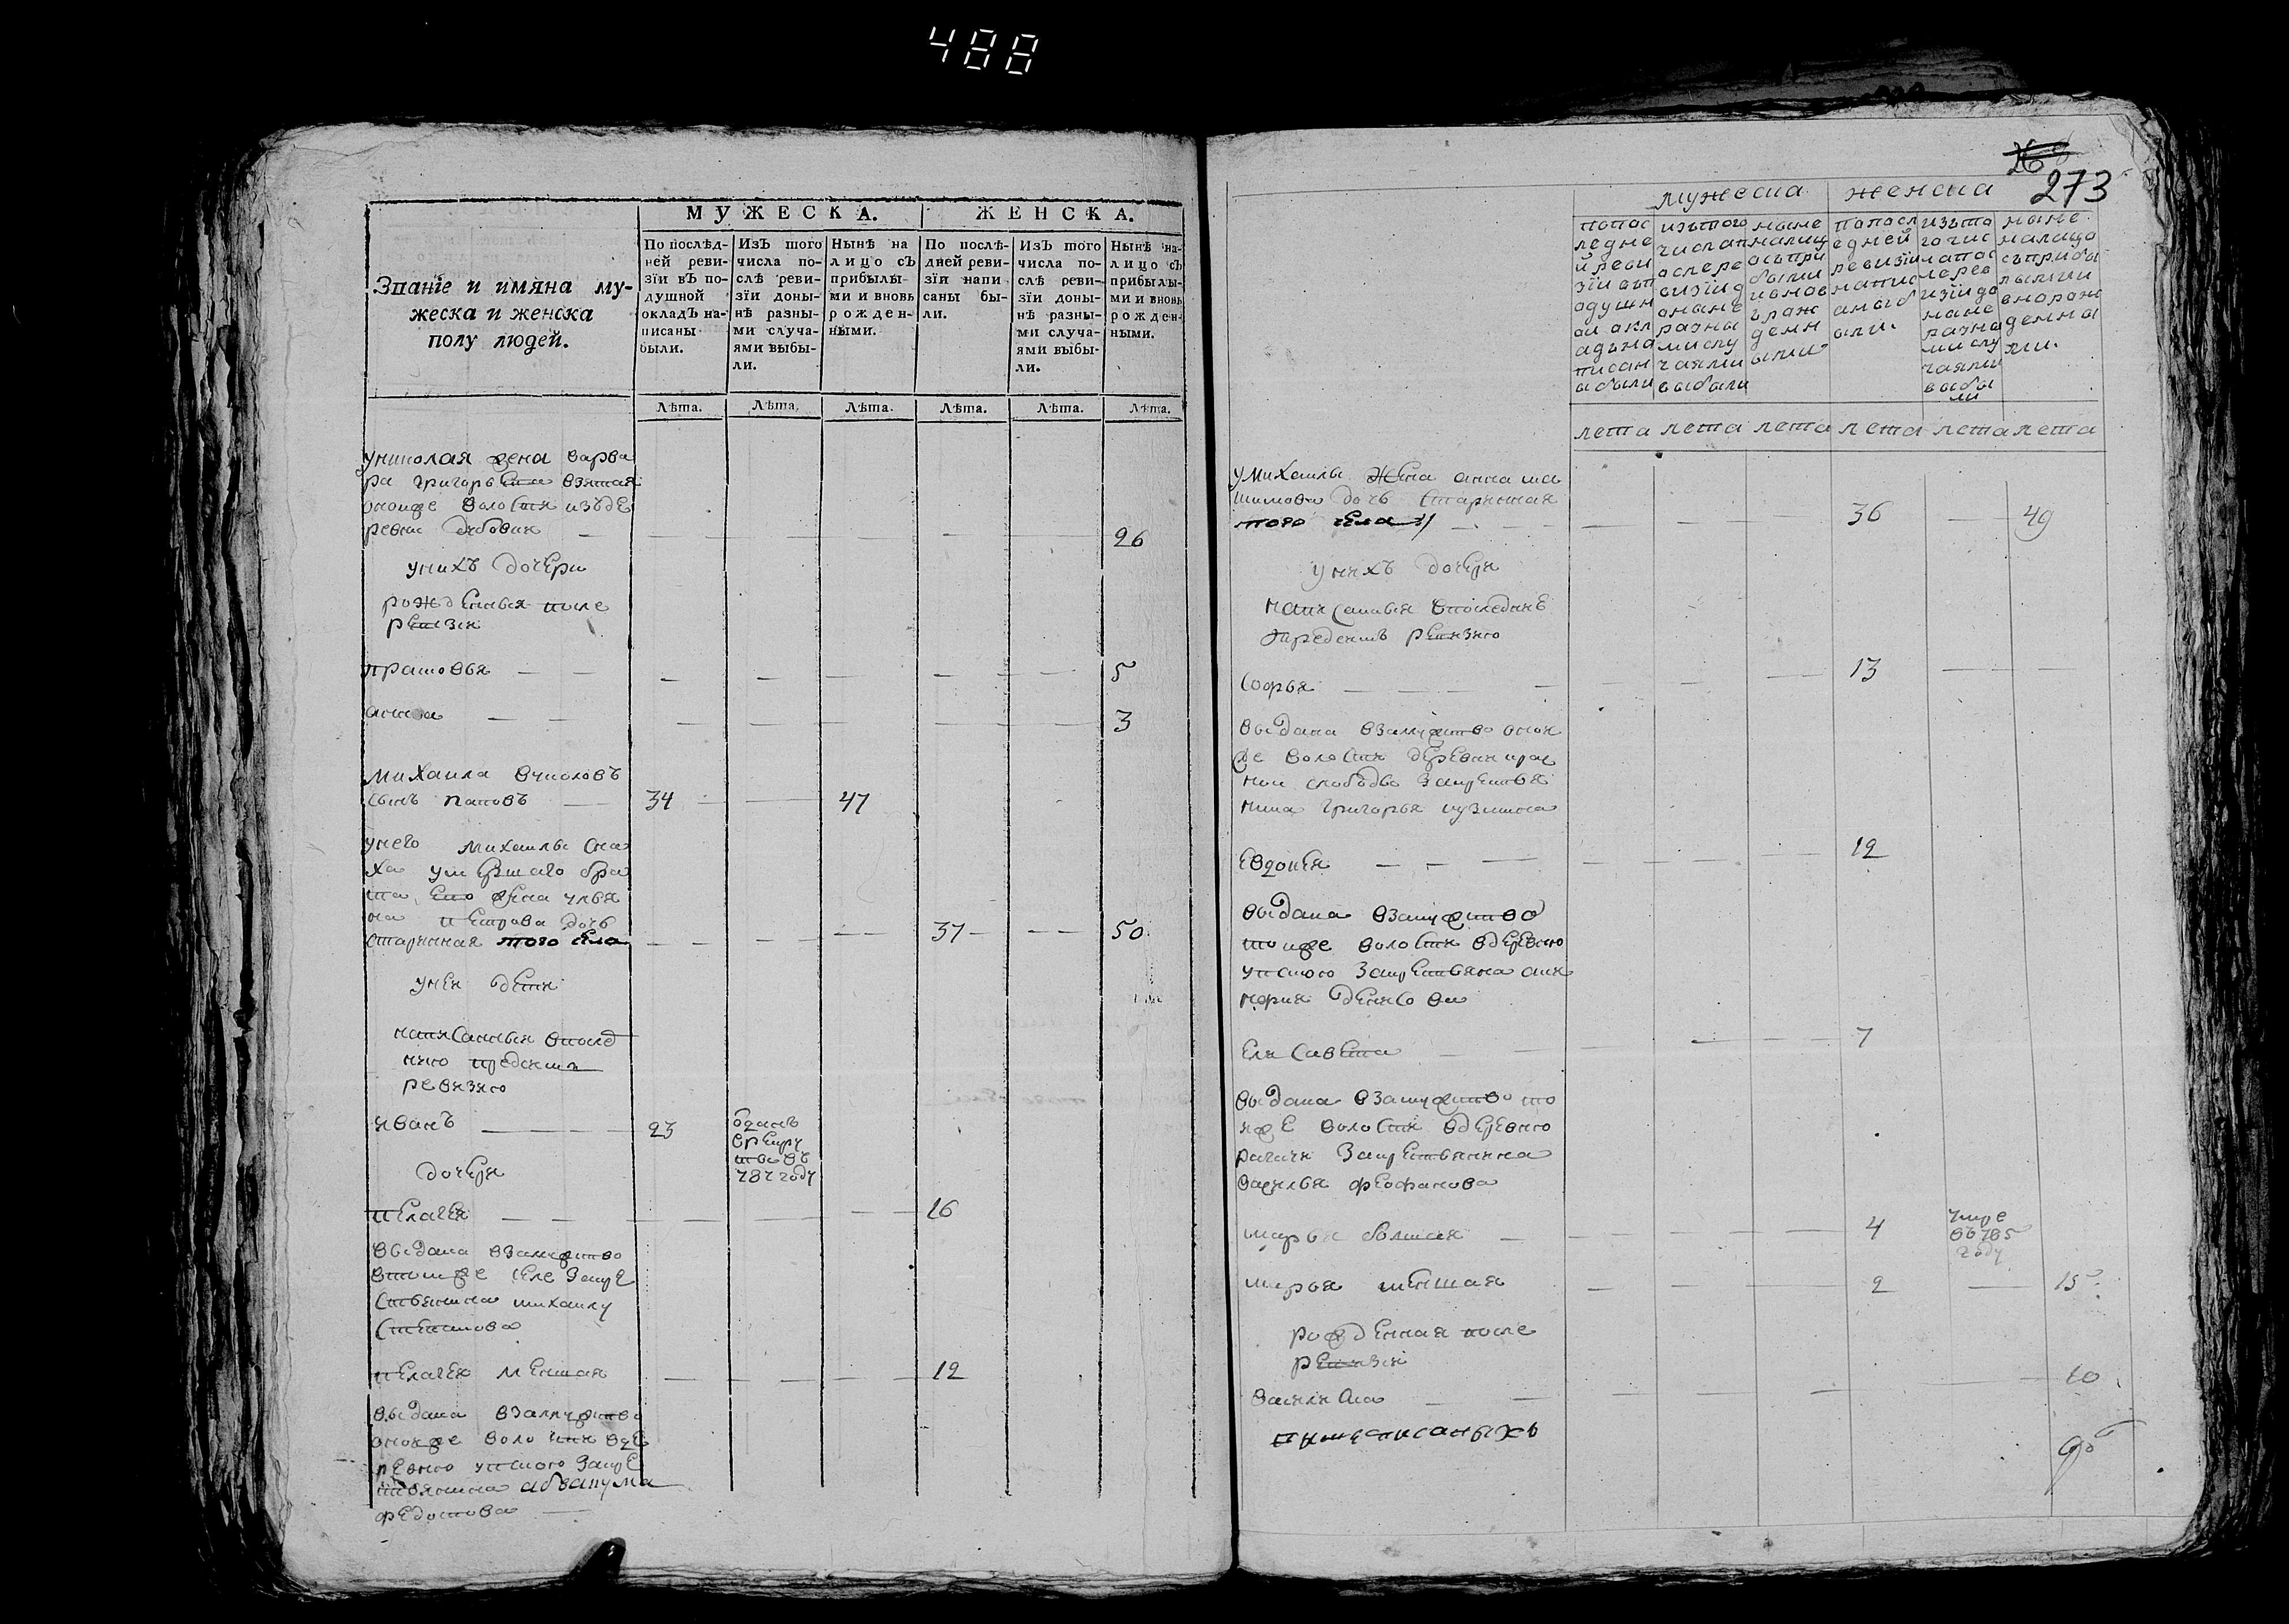 488
МУЖЕСКА. ЖЕНСКА.
Званїе и имяна му-
жеска и женска
полу людей.
По послѣд-
ней реви-
зїи въ по-
душной
окладъ на-
писаны
были.
Изъ того
числа по-
слѣ реви-
зїи доны-
нѣ разны-
ми случа-
ями выбы-
ли.
Нынѣ на
лицо съ
прибылы-
ми и вновь
рожден-
ными.
По послѣ-
дней реви-
зїи напи
саны бы-
ли.
Изъ того
числа по-
слѣ реви-
зїи доны-
нѣ разны-
ми случа-
ями выбы-
ли.
Нынѣ на-
лицо съ
прибылы-
ми и вновь
рожден-
ными.
Лѣта. Лѣта. Лѣта. Лѣта. Лѣта. Лѣта.
униколая жена варва
ра григорьева взятая
оноиже волости издѣ
ревни 26
унихъ дочери
рожденныя после
ревизiи
прасковья 5
анна 3
михаила вуколовъ
сынъ паповъ 34 47
унего михаилы сна
ха умершаго бра
та его жена улья
на петрова дочь
старинная того села 37 50
унеи дети
написанныя впослед
нюю пред сим
ревизию
иванъ 23
отданъ
врекру
ты въ
787 году
дочери
пелагея 16
выдана взамужство
втомже селе закре
стьянина михаилу
степанова
пелагея меншая 12
выдана взамужство
оноиже волости вде
ревню закре
стьянина авакума
федотова
273
мужеска женска
попос
ледне
й реви
зїи вп
одушн
ои окл
адъна
писан
ы были
изътого
числап
ослере
визїид
оныне
разны
мислу
чаями
выбыли
ныне
налиц
осъпри
былы
ивнов
ьрож
денн
ыми
попосл
едней
ревизїи
напис
аныб
ыли.
изъто
гочис
лапос
лерев
изїидо
ныне
разны
мислу
чаями
выбы
ли
ныне
налицо
съприбы
лыми
вноврож
денны
ми.
лета лета лета лета лета лета
умихаилы жена анна ма
ѯимова дочь старинная
того села 36 49
унихъ дочери
написанныя впоследнѣ
пред сим ревизию
софья 13
выдана взамужство оноя
же волости деревни крас
нои слободы закрестья
нина григорья кузмина
евдокея 12
выдана взамужство
тоиже волости вдеревню
закрестьянина они
денисова
елисавета 7
выдана взамужство то
яже волости вдеревню
закрестьянина
василья феофанова
марья болшая 4
умре
въ 785
году
марья меншая 2 15
рожденная после
ревизiи
василиса 10